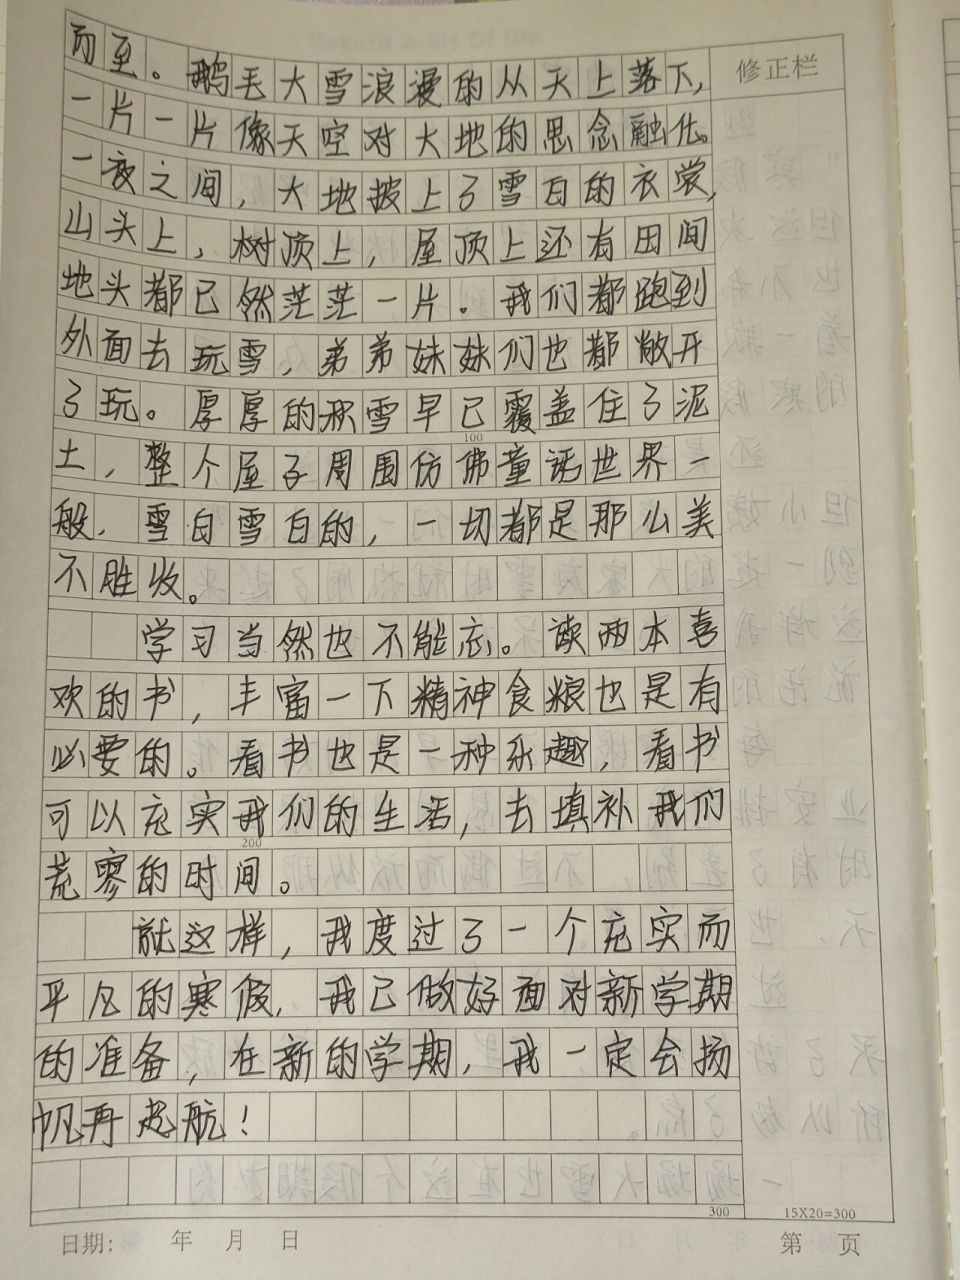 修正栏
而至。鹅毛大雪浪漫的从天上落下,
一片一片像天空对大地的思念融化。
一夜之间,大地披上了雪白的衣裳,
山头上,树顶上,屋顶上还有田间
地头都已然茫茫一片。我们都跑到
外面去玩雪,弟弟妹妹们也都敞开
了玩。厚厚的积雪早已覆盖住了泥
100
土,整个屋子周围仿佛童话世界一
般,雪白雪白的,一切都是那么美
不胜收。
学习当然也不能忘。读两本喜
欢的书,丰富一下精神食粮也是有
必要的。看书也是一种乐趣,看书
可以充实我们的生活,去填补我们
200
荒寥的时间。
就这样,我度过了一个充实而
平凡的寒假,我已做好面对新学期
的准备,在新的学期,我一定会扬
帆再起航!
300
15X20=300
日期: 年 月 日
第 页